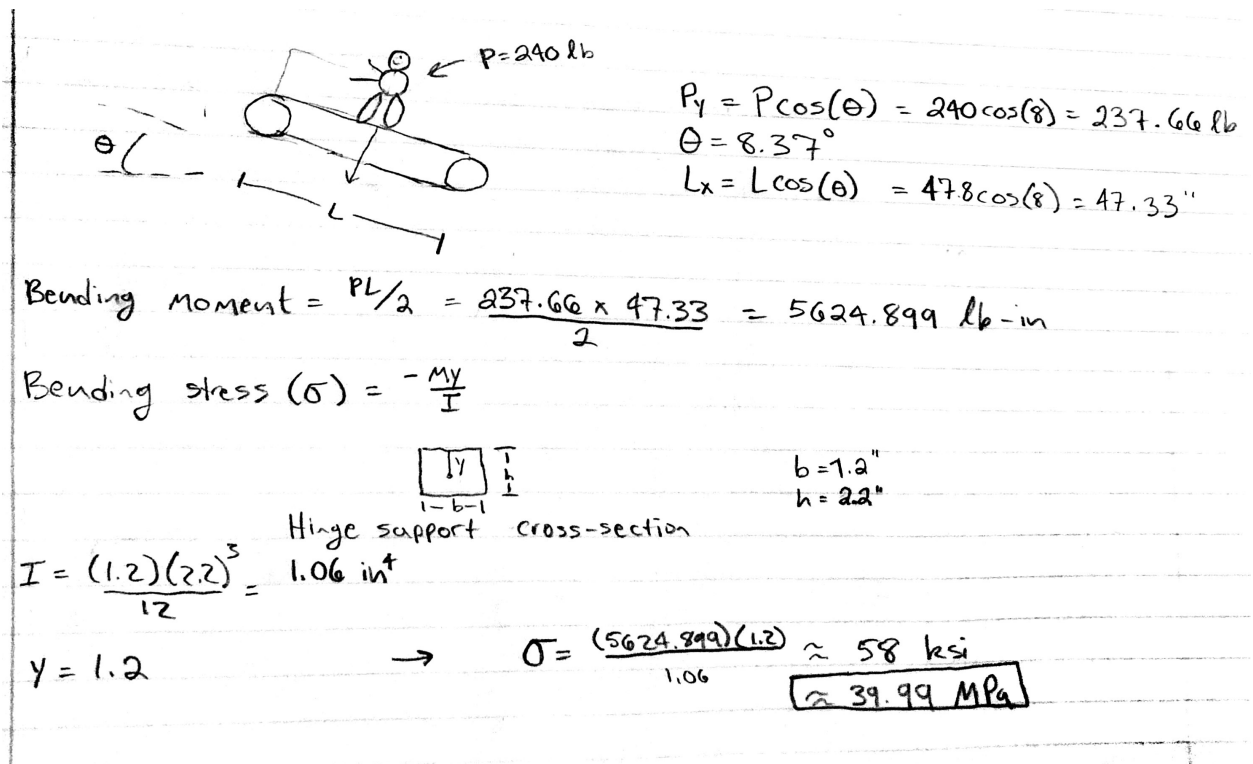 P=240 lb
Py = Pcos(θ) = 240cos(8) = 237.66 lb
θ = 8.37°
Lx = Lcos(θ) = 47.8cos(8) = 47.33"
θ
L
Bending Moment = PL/2 = 237.66 x 47.33 / 2 = 5624.899 lb-in
Bending stress (σ) = - My/I
y h
b
b = 1.2"
h = 2.2"
Hinge support cross-section
I = (1.2)(2.2)³/12 = 1.06 in⁴
y = 1.2 → σ = (5624.899)(1.2)/1.06 ≈ 58 ksi
≈ 39.99 MPa